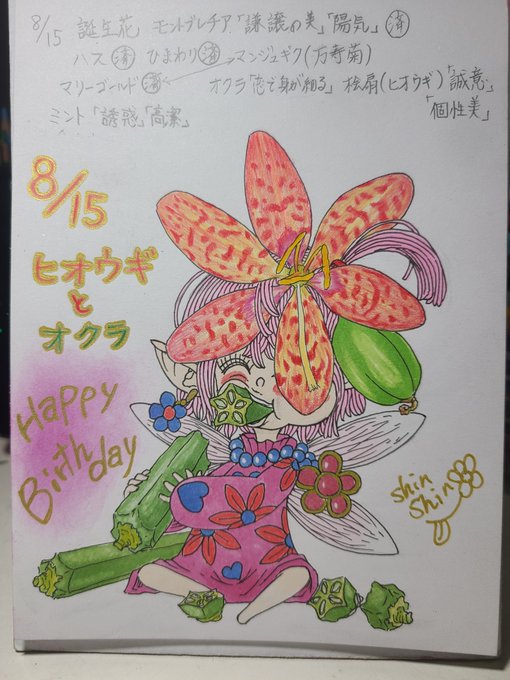 8/15 誕生花 モントブレチア「謙譲の美」「陽気」済
ハス 済 ひまわり 済 マンジュギク(万寿菊)
マリーゴールド 済 オクラ「恋で身が細る」 桧扇(ヒオウギ)「誠意」
ミント「誘惑」「高潔」 「個性美」
8/15
ヒオウギ
と
オクラ
Happy
Birthday
shin
shin